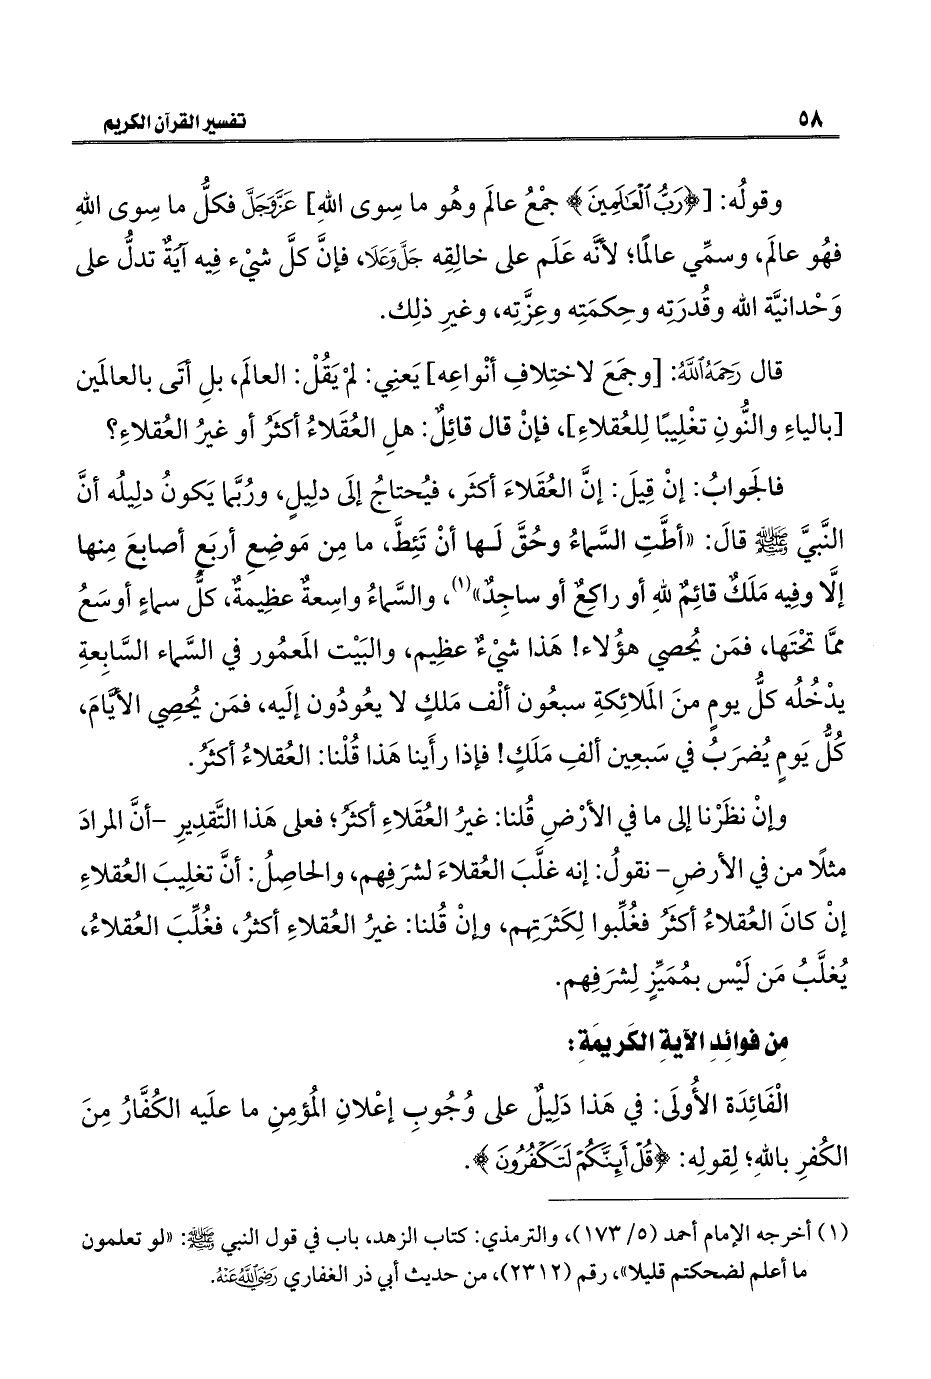 ٥٨
تفسير القرآن الكريم
وقولُه: [﴿رَبُّ ٱلْعَٰلَمِينَ﴾ جمْعُ عالَم وهُو ما سِوى اللهِ] عَزَّوَجَلَّ فكلُّ ما سِوى اللهِ
فهُو عالَم، وسمِّي عالمًا؛ لأنَّه عَلَم على خالِقِه جَلَّوَعَلَا، فإنَّ كلَّ شيْء فِيه آيَةٌ تدلُّ على
وَحْدانيَّة الله وقُدرَتِه وحِكمَتِه وعِزَّتِه، وغيرِ ذلِك.
قال رَحِمَهُ ٱللَّهُ: [وجمَعَ لاختِلافِ أنْواعِه] يَعنِي: لمْ يَقُلْ: العالَم، بلِ أتَى بالعالَمين
[بالياءِ والنُّونِ تغْلِيبًا لِلعُقلاءِ]، فإنْ قال قائِلٌ: هلِ العُقَلاءُ أكثَرُ أو غيرُ العُقلاءِ؟
فالجوابُ: إنْ قِيلَ: إنَّ العُقَلاءَ أكثَر، فيُحتاجُ إلَى دلِيلٍ، ورُبَّما يَكونُ دلِيلُه أنَّ
النَّبيَّ ﷺ قالَ: «أطَّتِ السَّماءُ وحُقَّ لَـها أنْ تَئِطَّ، ما مِن مَوضِعِ أربَعِ أصابِعَ مِنها
إلَّا وفِيه مَلَكٌ قائِمٌ للهِ أو راكِعٌ أو ساجِدٌ»(١)، والسَّماءُ واسِعةٌ عظِيمةٌ، كلُّ سماءٍ أوسَعُ
ممَّا تحْتَها، فمَن يُحصِي هؤُلاء! هَذا شيْءٌ عظِيم، والبَيْت المَعمُور في السَّماء السَّابِعةِ
يدْخُلُه كلُّ يومٍ منَ المَلائِكةِ سبعُون ألْف مَلكٍ لا يعُودُون إلَيه، فمَن يُحصِي الأيَّامَ،
كُلُّ يَومٍ يُضرَبُ في سَبعِين ألفِ مَلَكٍ! فإذا رأَينا هَذا قُلْنا: العُقلاءُ أكثَرُ.
وإنْ نظَرْنا إلى ما في الأرْضِ قُلنا: غيرُ العُقَلاءِ أكثَرُ؛ فعلى هَذا التَّقدِيرِ -أنَّ المرادَ
مثلًا من في الأرضِ- نقولُ: إنه غلَّبَ العُقلاءَ لشرَفِهم، والحاصِلُ: أنَّ تغلِيبَ العُقلاءِ
إنْ كانَ العُقلاءُ أكثَرُ فغُلِّبوا لِكَثرَتِهم، وإنْ قُلنا: غيرُ العُقلاءِ أكثرُ، فغُلِّبَ العُقلاءُ،
يُغلَّبُ مَن لَيْس بمُميَّزٍ لِشرَفِهم.
مِن فوائِدِ الآيةِ الكَريمَةِ:
الْفَائِدَة الأُولَى: في هَذا دَلِيلٌ على وُجُوبِ إعْلانِ المُؤمِنِ ما علَيه الكُفَّارُ مِنَ
الكُفرِ باللهِ؛ لِقولِه: ﴿قُلْ أَئِنَّكُمْ لَتَكْفُرُونَ﴾.
(١) أخرجه الإمام أحمد (٥/ ١٧٣)، والترمذي: كتاب الزهد، باب في قول النبي ﷺ: «لو تعلمون
ما أعلم لضحكتم قليلا»، رقم (٢٣١٢)، من حديث أبي ذر الغفاري رَضِيَ ٱللَّهُ عَنْهُ.